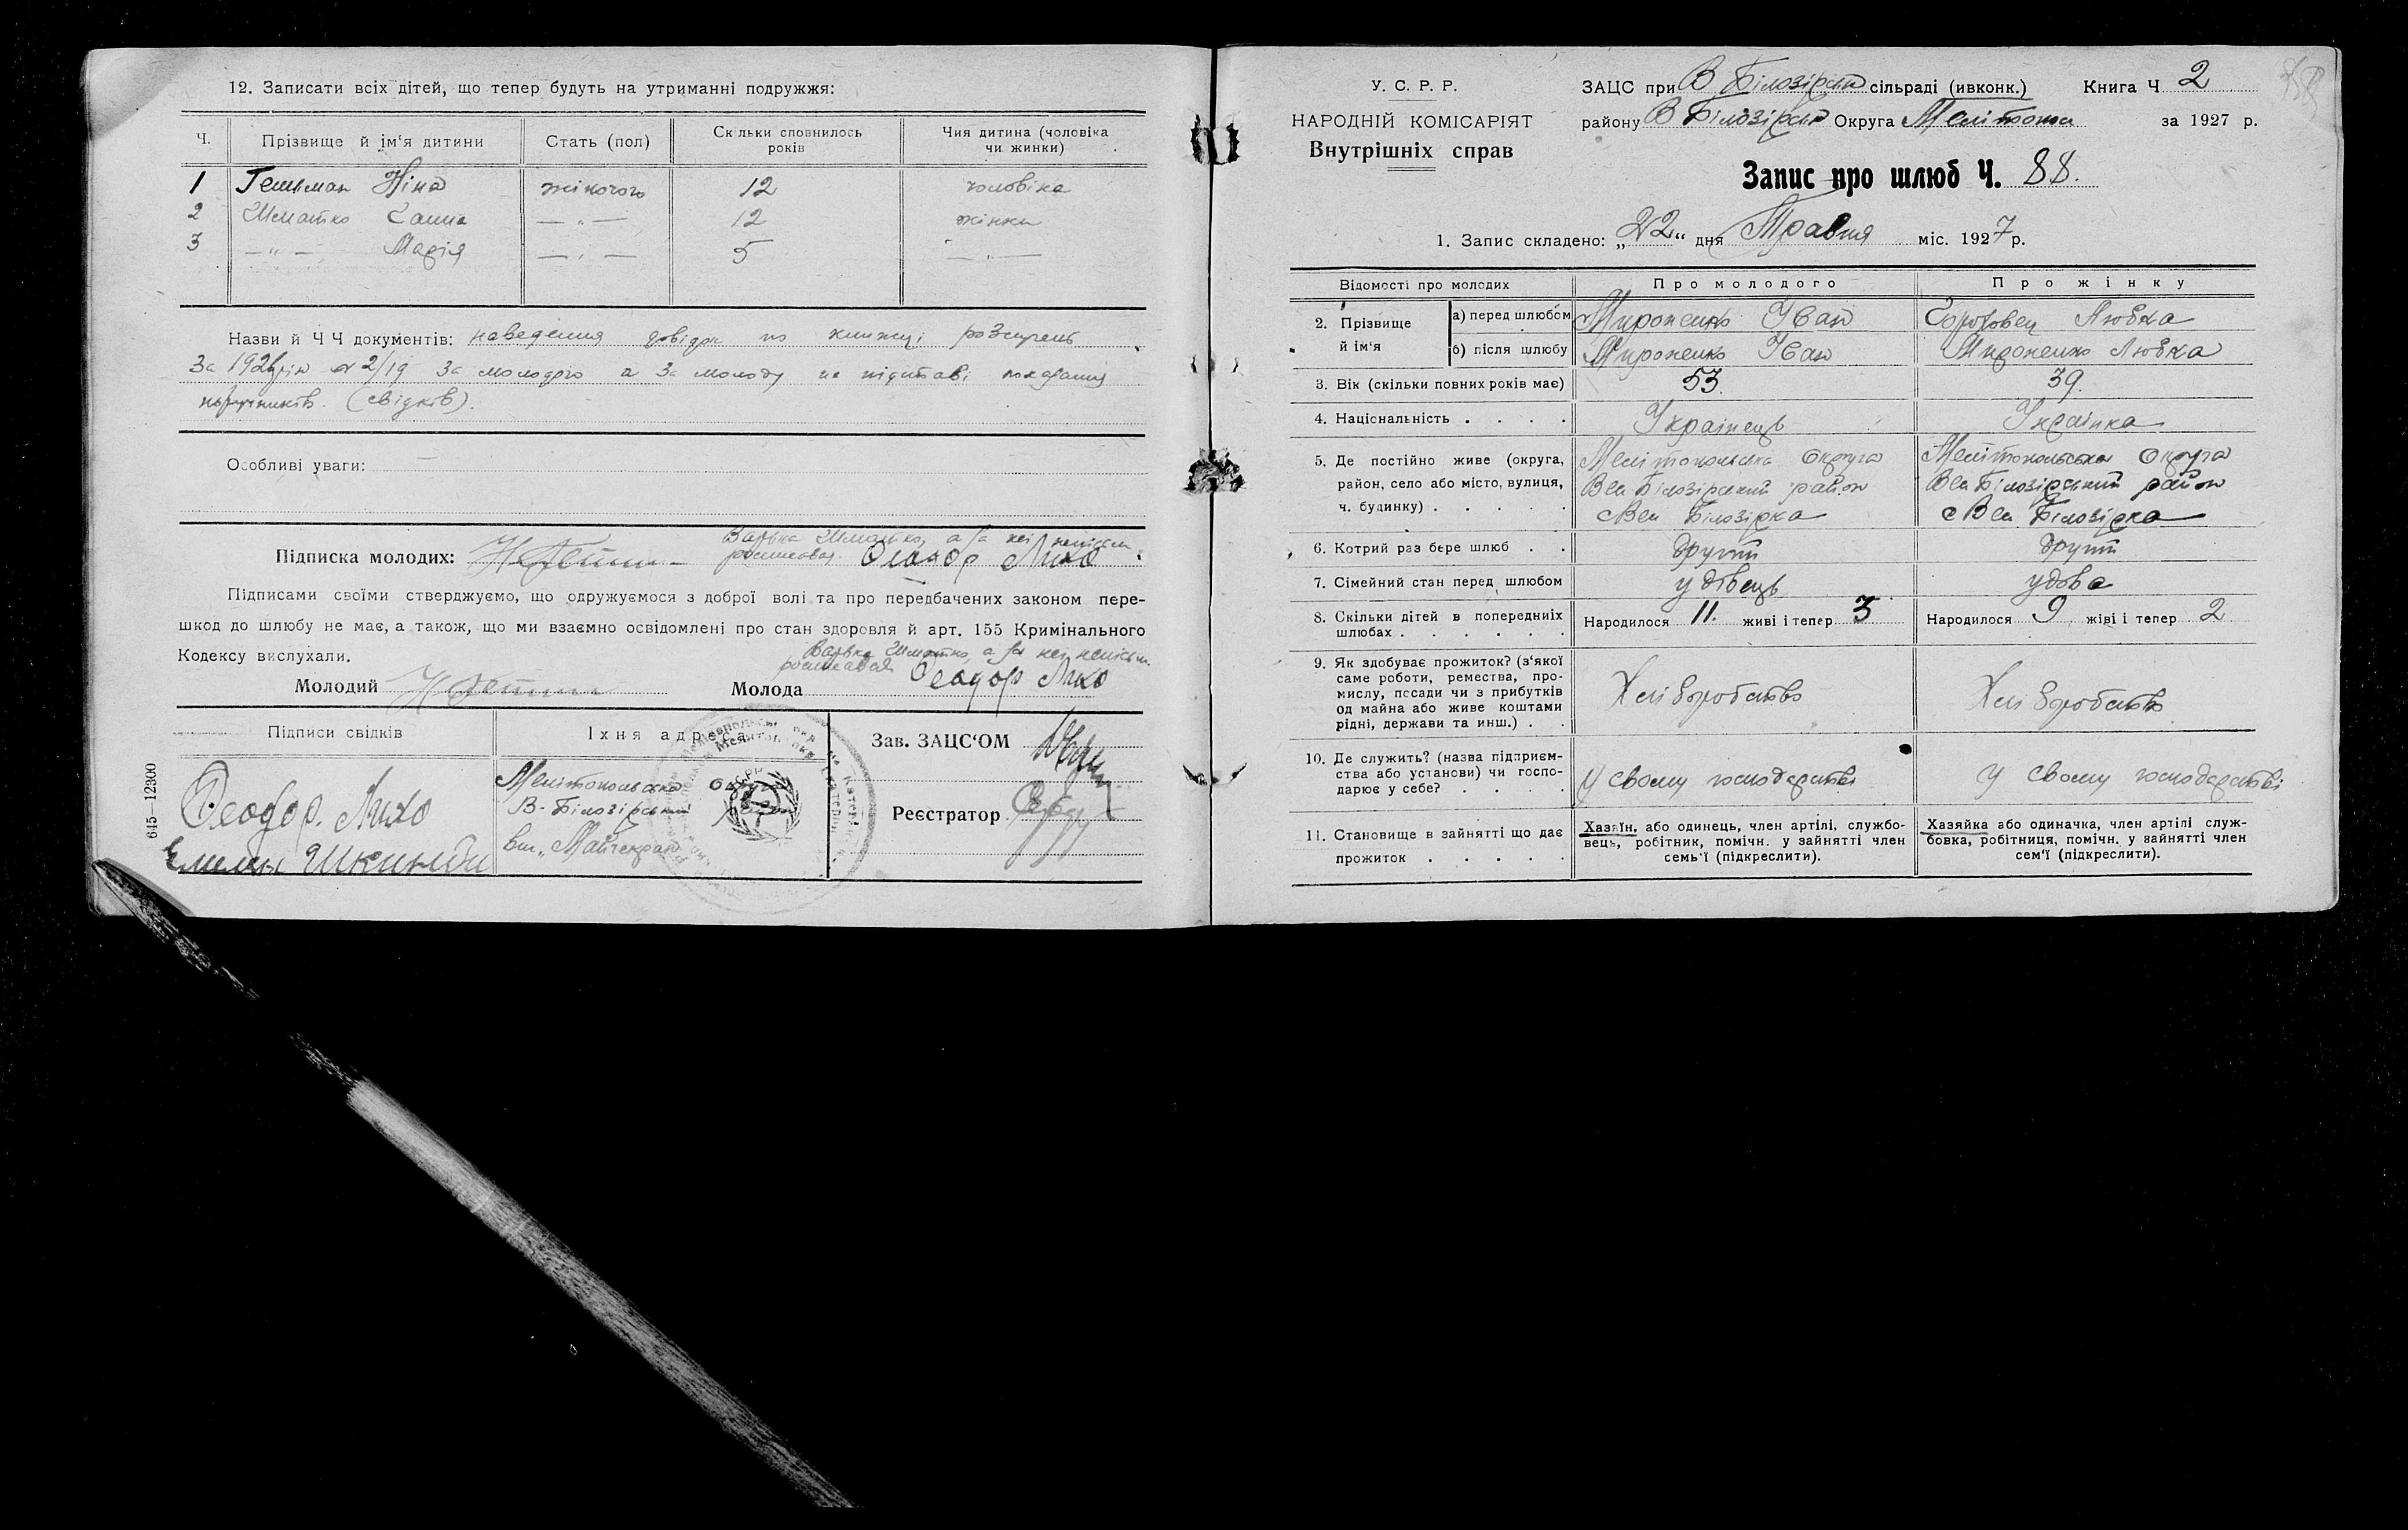 12. Записати всіх дітей, що тепер будуть на утриманні подружжя:
Ч. Прізвище й ім'я дитини Стать (пол) Скільки сповнилось років Чия дитина (чоловіка чи жинки)
1 Гельман Ніна жіночого 12 чоловіка
2 Шматко Ганна — „ — 12 жінки
3 — „ — Марія — „ — 5 — „ —
Назви й Ч Ч документів: наведення довідок по книжці
за молодого а за молоду на підставі показання
(свідків).
Особливі уваги: —
Варька Шматко, а за неї неписьм.
Підписка молодих: росписався Феодор Лихо
Підписами своїми стверджуємо, що одружуємося з доброї волі та про передбачених законом пере-
шкод до шлюбу не має, а також, що ми взаємно освідомлені про стан здоровля й арт. 155 Кримінального
Кодексу вислухали.
Варька Шматко, а за неї неписьм.
росписався
Молодий Молода Феодор Лихо
Підписи свідків Їхня адреса Зав. ЗАЦС'ОМ
Феодор. Лихо
Мелітопольська Округа
В-Білозірський район
Реєстратор
645—12300
У. С. Р. Р.
НАРОДНІЙ КОМІСАРІЯТ
Внутрішніх справ
ЗАЦС при В Білозірськ сільраді (ивконк.) Книга Ч 2
району В Білозірськ Округа Мелітопол за 1927 р.
Запис про шлюб Ч. 88.
1. Запис складено: „22" дня Травня міс. 1927 р.
Відомості про молодих Про молодого Про жінку
2. Прізвище й ім'я
а) перед шлюбом Мироненко Іван Любка
б) після шлюбу Мироненко Іван Мироненко Любка
3. Вік (скільки повних років має) 53. 39.
4. Національність . . . . Українець Українка
5. Де постійно живе (округа, район, село або місто, вулиця, ч. будинку) . . . . .
Мелітопольська округа
Вел Білозірський район
с Вел Білозірка
Мелітопольська округа
Вел Білозірський район
с Вел Білозірка
6. Котрий раз бере шлюб . . другий другий
7. Сімейний стан перед шлюбом удівець удова
8. Скільки дітей в попередниіх шлюбах . . . . . . Народилося 11. живі і тепер 3 Народилося 9 живі і тепер 2
9. Як здобуває прожиток? (з'якої саме роботи, ремества, промислу, посади чи з прибутків од майна або живе коштами рідні, держави та инш.) . . Хліборобство Хліборобство
10. Де служить? (назва підприємства або установи) чи господарює у себе? . . . . У свому господарстві У свому господарстві
11. Становище в зайнятті що дає прожиток . . . . .
Хазяїн, або одинець, член артілі, службовець, робітник, помічн. у зайнятті член семь'ї (підкреслити).
Хазяйка або одиначка, член артілі службовка, робітниця, помічн. у зайнятті член сем'ї (підкреслити).